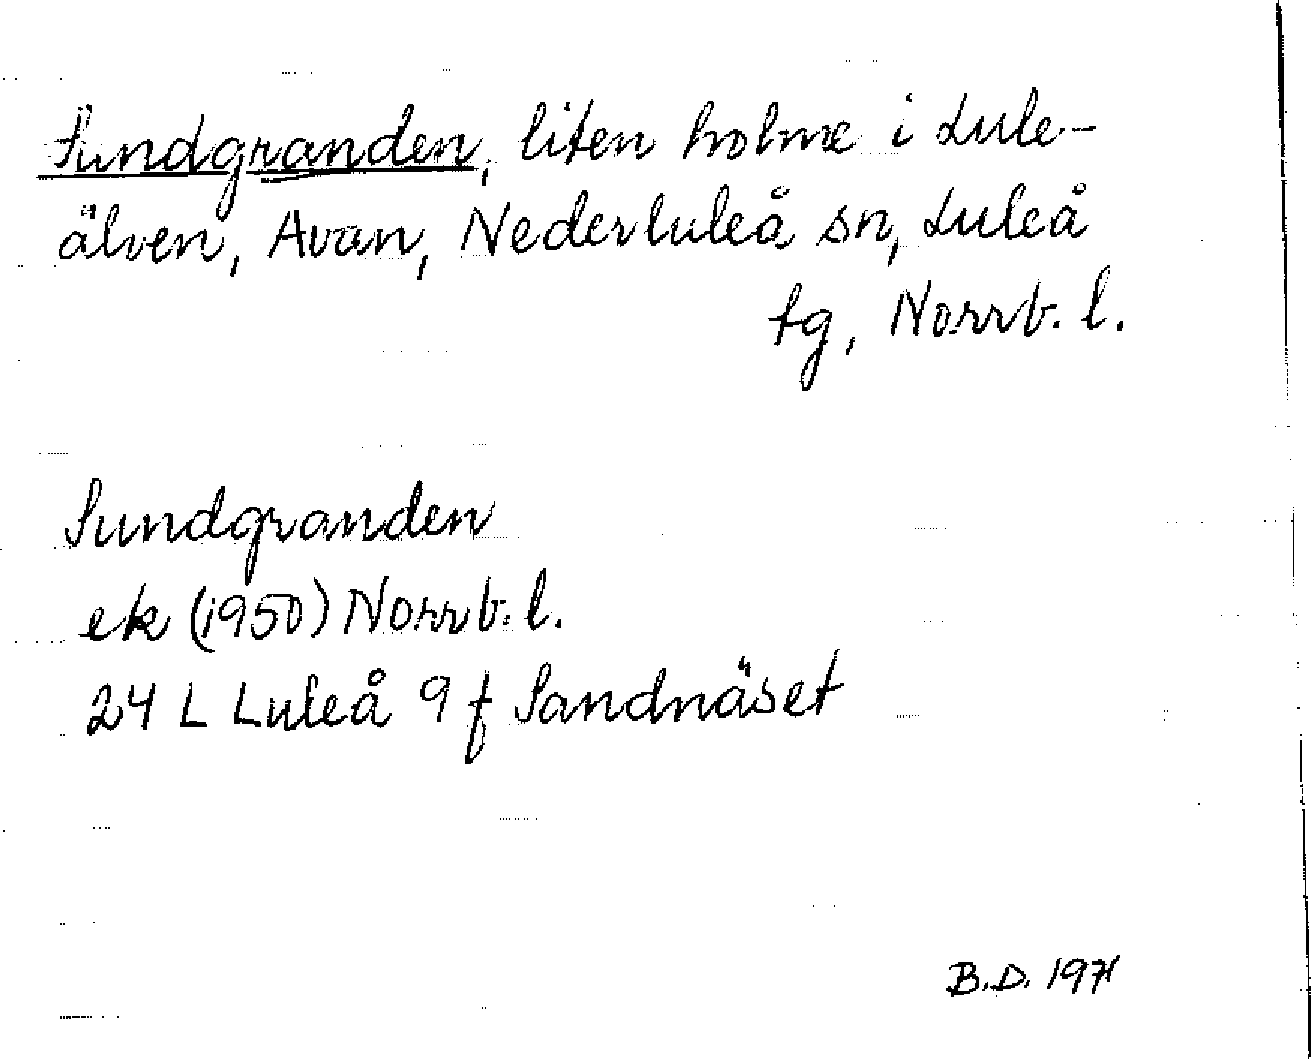 Sundgranden, liten holme i Lule-
älven, Avan, Nederluleå sn, Luleå
tg, Norrb. l.
Sundgranden
ek (1950) Norrb. l.
24 L Luleå 9 f Sandnäset
B.D. 1971